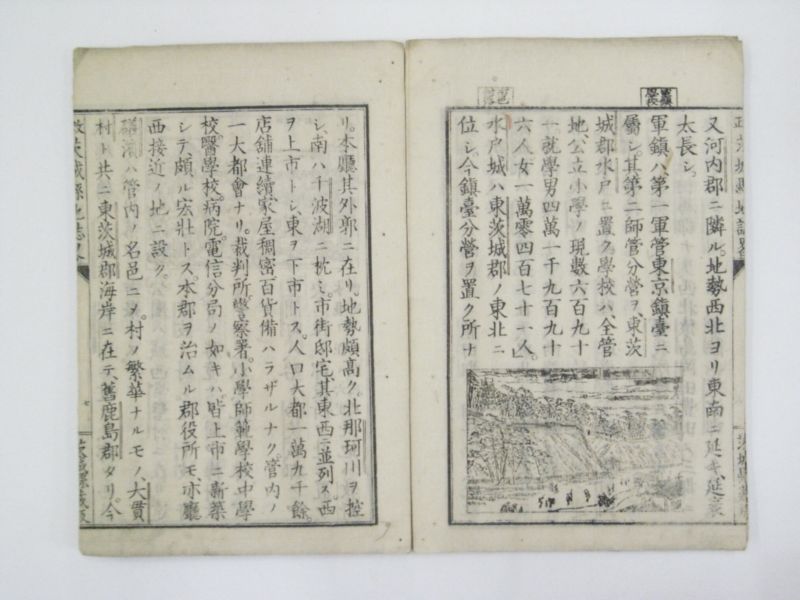 鎮學
軍校
邑名
又河内郡ニ隣ル。地勢西北ヨリ東南ニ延キ、延袤
太長シ。
軍鎮ハ、第一軍管東京鎮臺ニ
屬シ其第二師管分營ヲ、東茨
城郡水戸ニ置ク學校ハ、全管
地、公立小學ノ現數六百九十
一就學男四萬一千九百九十
六人女一萬零四百七十一人。
水戸城ハ東茨城郡ノ東北ニ
位シ今鎮臺分營ヲ置ク所ナ
リ。本廳其外郭ニ在リ。地勢頗高ク。北那珂川ヲ控
シ、南ハ千波湖ニ枕ミ。市街邸宅其東西ニ並列ス。西
ヲ上市トシ、東ヲ下市トス。人口大都一萬九千餘。
店舗連續家屋稠密百貨備ハラザルナク管内ノ
一大都會ナリ。裁判所警察署。小學師範學校中學
校、醫學校。病院電信分局ノ如キハ皆上市ニ新築
シテ頗ル宏壯トス本郡ヲ治ムル郡役所モ、亦廳
西接近ノ地ニ設ク。
磯濱ハ管内ノ名邑ニメ。村ノ繁華ナルモノ、大貫
村ト共ニ東茨城郡海岸ニ在テ、舊鹿島郡タリ。今
茨城縣地誌畧